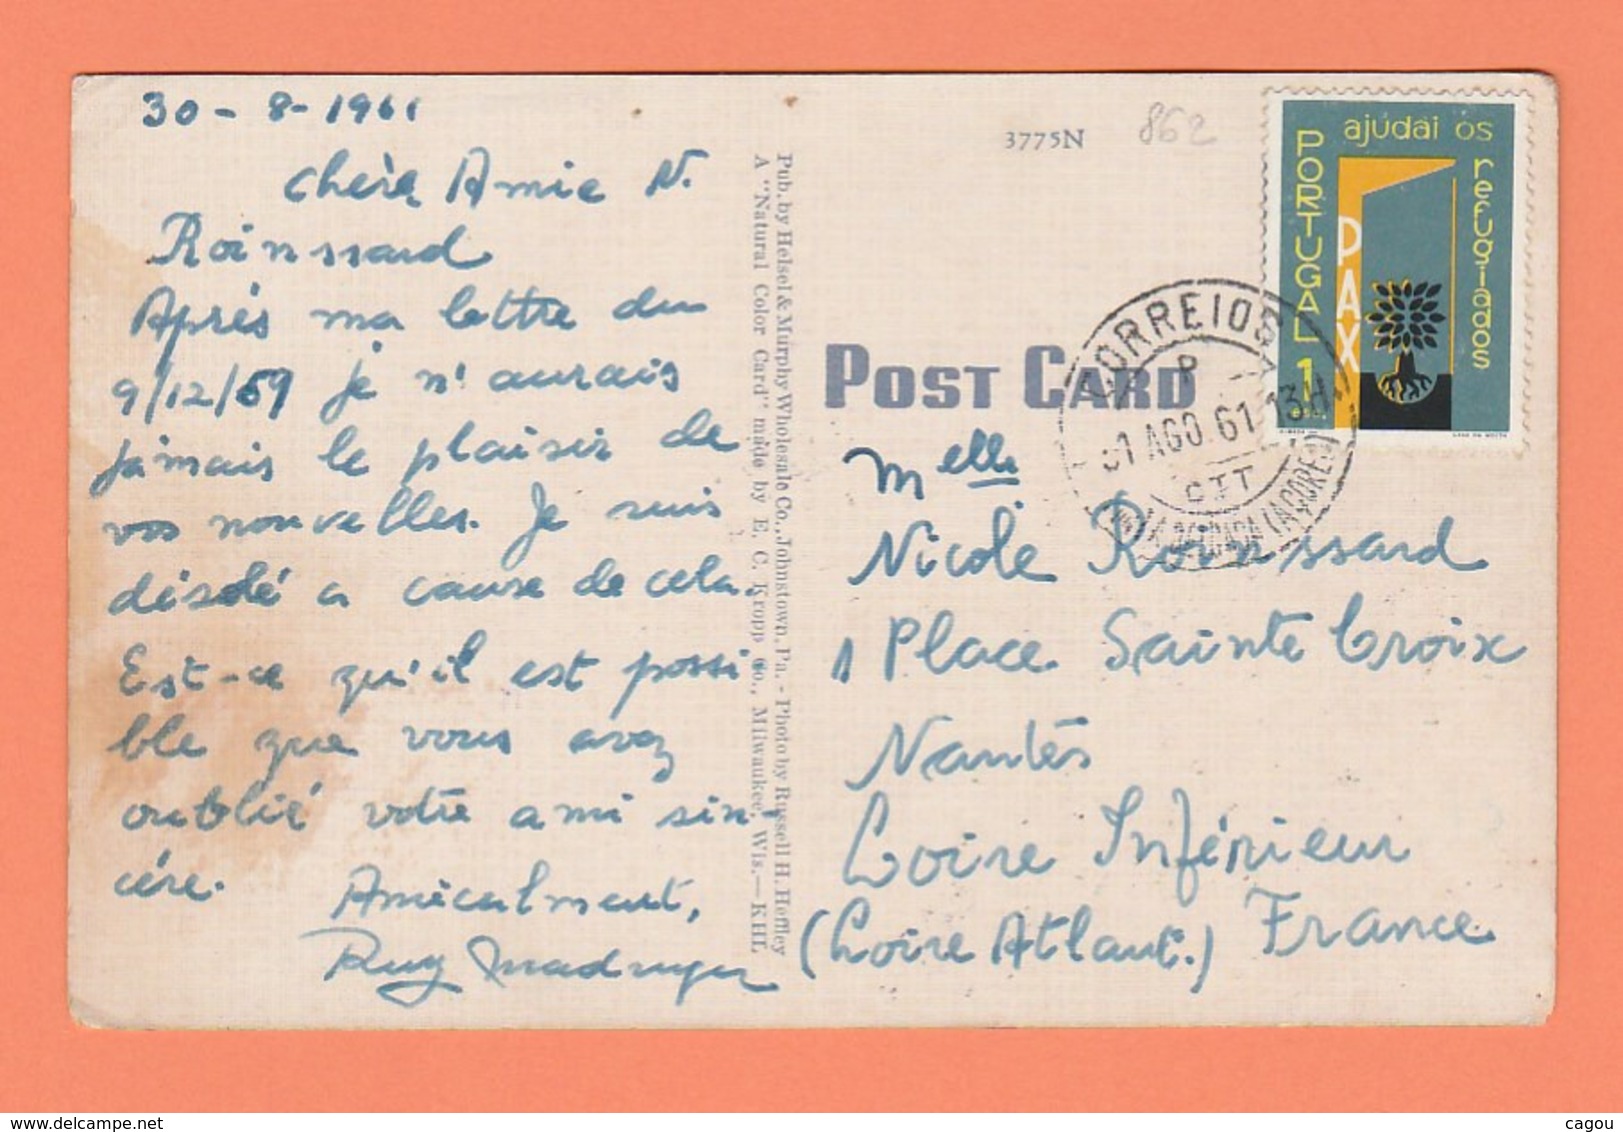 30-8-1961
Chère Amie N.
Roinssard
Après ma lettre du
9/12/59 je n'aurais
jamais le plaisir de
vos nouvelles. Je suis
désolé a cause de cela.
Est-ce qu'il est possi
ble que vous avez
oublié votre ami sin-
cére.
Amicalment,
Ruy
Pub. by Helsel & Murphy Wholesale Co., Johnstown, Pa. - Photo by Russell H. Heffley
A "Natural Color Card" made by E. C. Kropp Co., Milwaukee, Wis.—KHL
3775N
862
POST CARD
PORTUGAL
ajudai os
refugiados
PAX
1
CORREIOS
P
31 AGO. 61 13H
CTT
(AÇORES)
Melle
Nicole Roinssard
1 Place Sainte Croix
Nantes
Loire Inférieur
(Loire Atlant.) France
delcampe.net
cagou